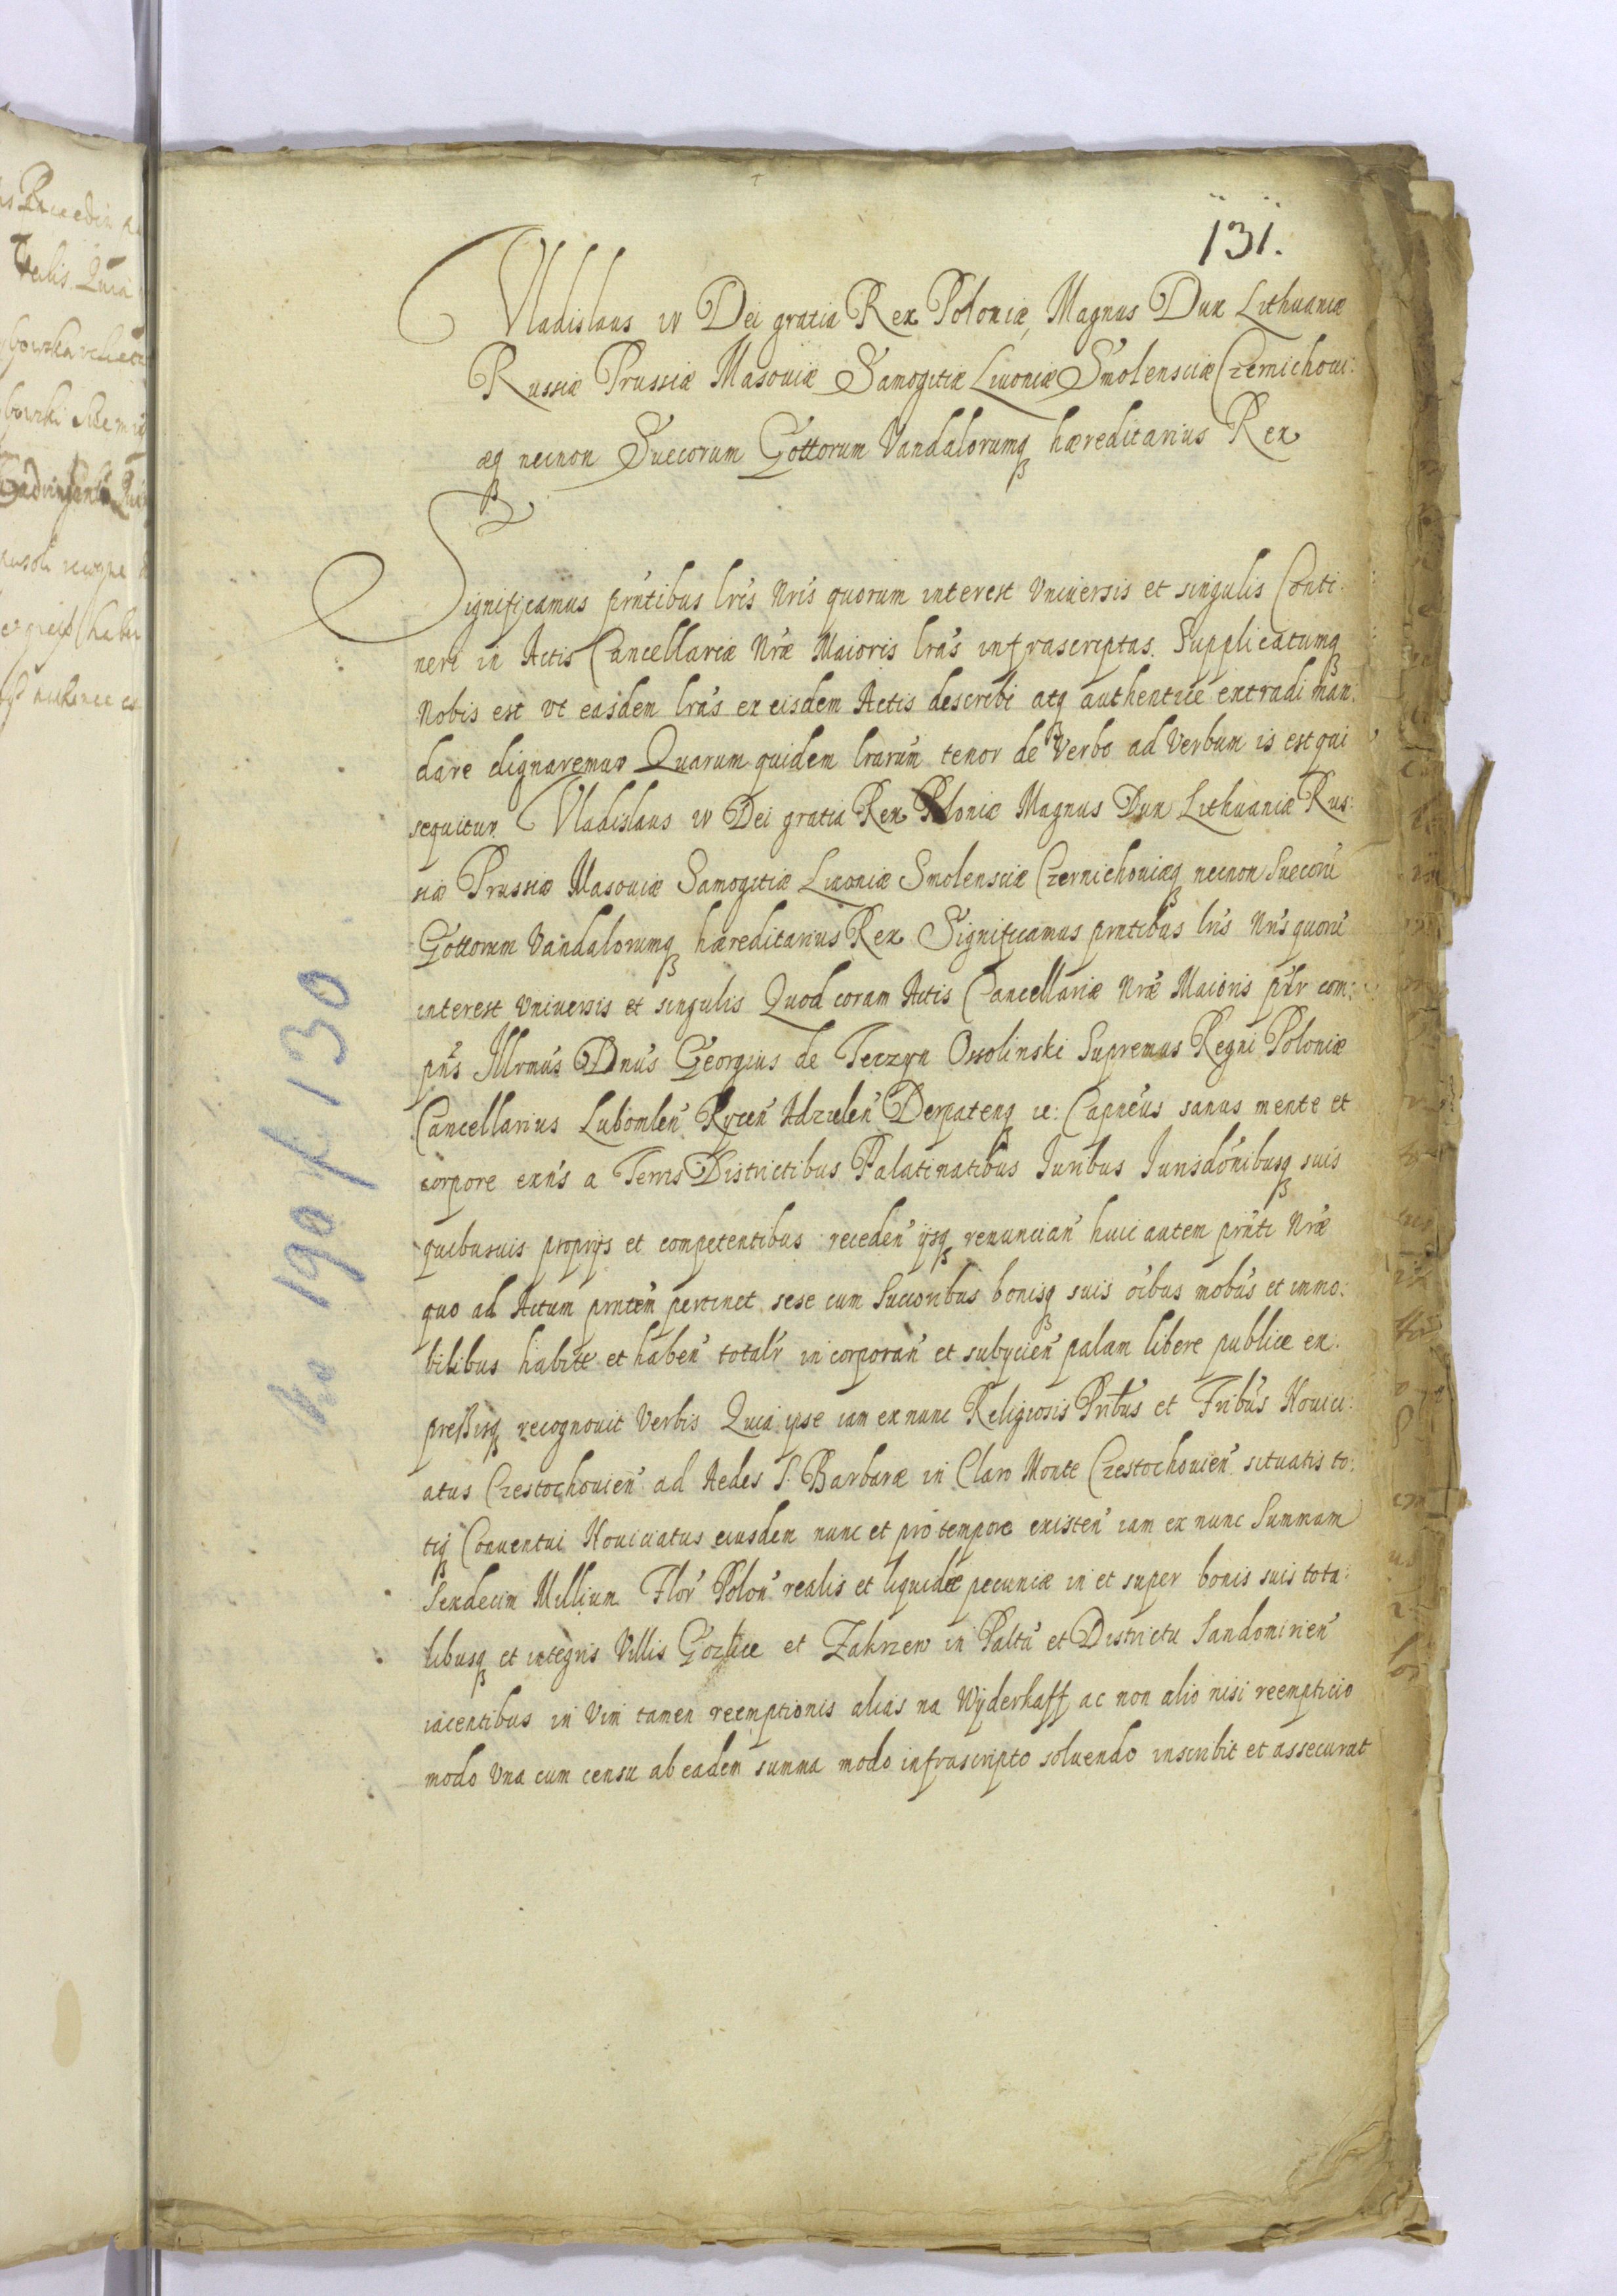 131.
Vladislaus IV Dei gratia Rex Poloniæ, Magnus Dux Lithuaniæ
Russiæ Prussiæ Masouiæ Samogitiæ Liuoniæ Smolensciæ Czernichoui:
æq necnon Suecorum Gottorum Vandalorumq hæreditarius Rex
Significamus prñtibus lris Nris quorum interest Vniuersis et singulis Conti:
neri in Actis Cancellariæ Nræ Maioris lras infrascriptas. Supplicatumq
Nobis est vt easdem lras ex eisdem Actis describi atq authentice extradi man:
dare dignaremur Quarum quidem lrarum tenor de Verbo ad Verbum is est qui
sequitur. Vladislaus IV Dei gratia Rex Poloniæ Magnus Dux Lithuaniæ Rus:
siæ Prussiæ Masouiæ Samogitiæ Liuoniæ Smolensciæ Czernichouiæq necnon Suecorū
Gottorum Vandalorumq hæreditarius Rex Significamus prntibus lris Nris quorū
interest Vniuersis et singulis Quod coram Actis Cancellariæ Nræ Maioris pslr com:
pns Illrmus Dnus Georgius de Teczyn Ossolinski Supremus Regni Poloniæ
Cancellarius Lubomlen Rycen Adzielen Derpatenq ie: Capneus sanus mente et
corpore exns a Terris Districtibus Palatinatibus Iuribus Iurisdonibusq suis
quibusuis proprijs et competentibus receden ijsq renuncian huic autem prnti Nræ
quo ad Actum prntem pertinet sese cum Succoribus bonisq suis oibus mobus et immo:
bilibus habite et haben totalr incorporan et subycien palam libere publice ex:
preßisq recognouit Verbis Quia ipse iam ex nunc Religiosis Pribus et Fribus Nouici:
atus Czestochouien ad Aedes S. Barbaræ in Claro Monte Czestochouien situatis to:
tiq Conuentui Nouiciatus eiusdem nunc et pro tempore existen iam ex nunc Summam
Sexdecim Millium Flor Polon realis et liquidæ pecuniæ in et super bonis suis tota:
libusq et integris Villis Gozlice et Zakrzew in Paltu et Districtu Sandomirien
iacentibus in Vim tamen reemptionis alias na Wyderkaff ac non alio nisi reempticio
modo Vna cum censu ab eadem summa modo infrascripto soluendo inscribit et assecurat
190 / 130